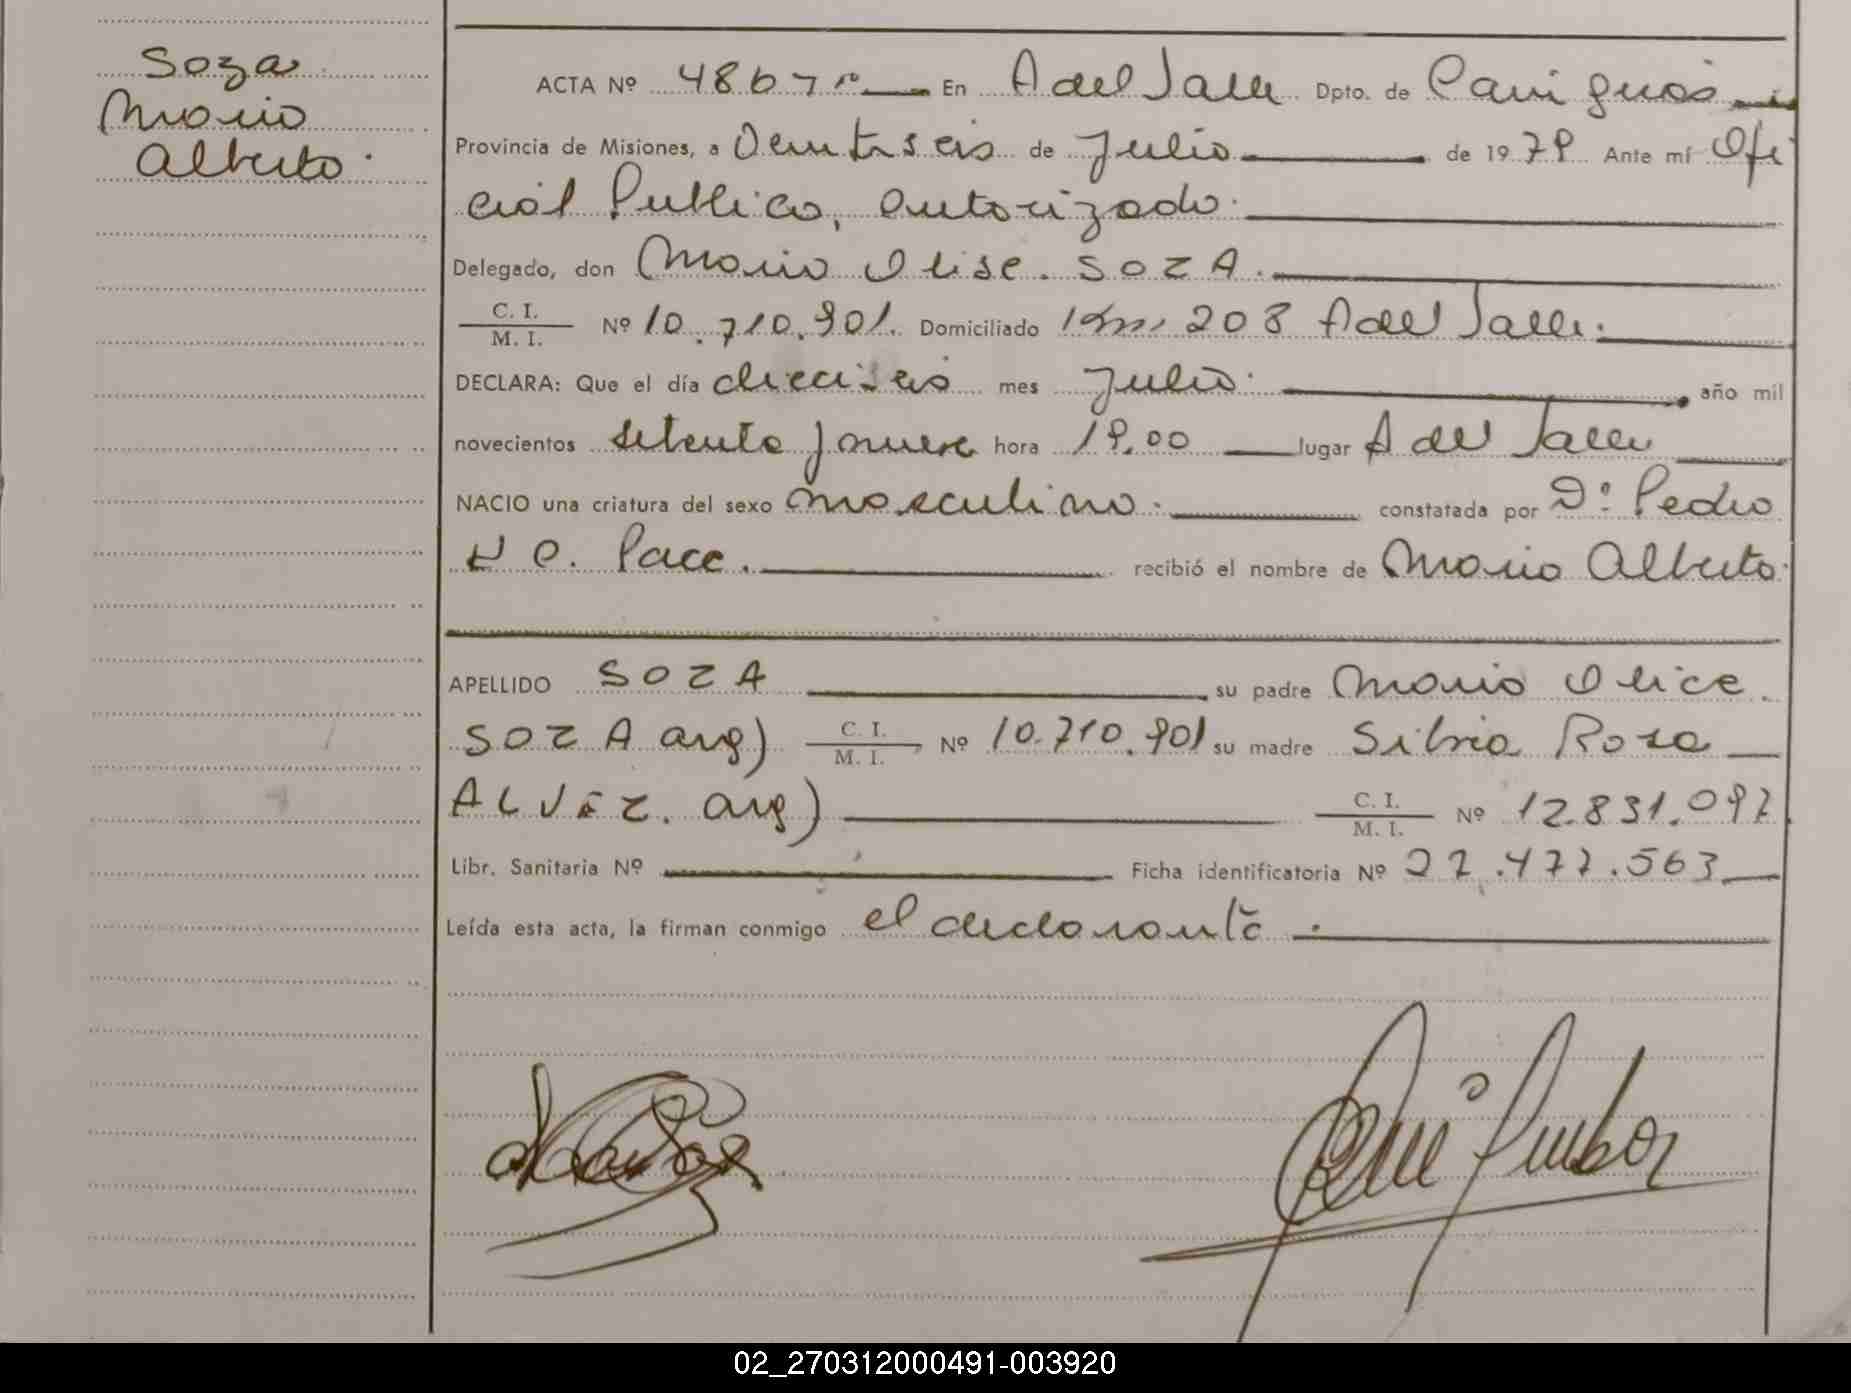 Soza
Mario
Alberto.
ACTA Nº 486 En A del Valle Dpto. de Cainguas
Provincia de Misiones, a Veintiseis de Julio de 1979 Ante mí Ofi
cial Publico, autorizado.
Delegado, don Mario Olise. SOZA.
C. I.
M. I. Nº 10.710.901. Domiciliado Km. 208 A del Valle.
DECLARA: Que el día dieciseis mes Julio. año mil
novecientos setenta y nueve hora 19.00 lugar A del Valle
NACIO una criatura del sexo masculino. constatada por Dº Pedro
Pace. recibió el nombre de Mario Alberto.
APELLIDO SOZA su padre Mario Olice.
SOZA arg) C. I. M. I. Nº 10.710.901 su madre Silvia Rosa
ALVEZ. arg) C. I. M. I. Nº 12.831.097
Libr. Sanitaria Nº Ficha identificatoria Nº 27.477.563
Leída esta acta, la firman conmigo el declarante.
02_270312000491-003920